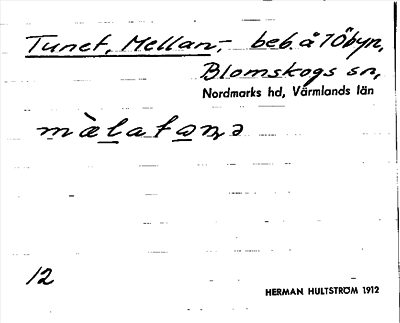 Tunet, Mellan-, beb. å 7 Öbyn,
Blomskogs sn,
Nordmarks hd, Värmlands län
12
HERMAN HULTSTRÖM 1912